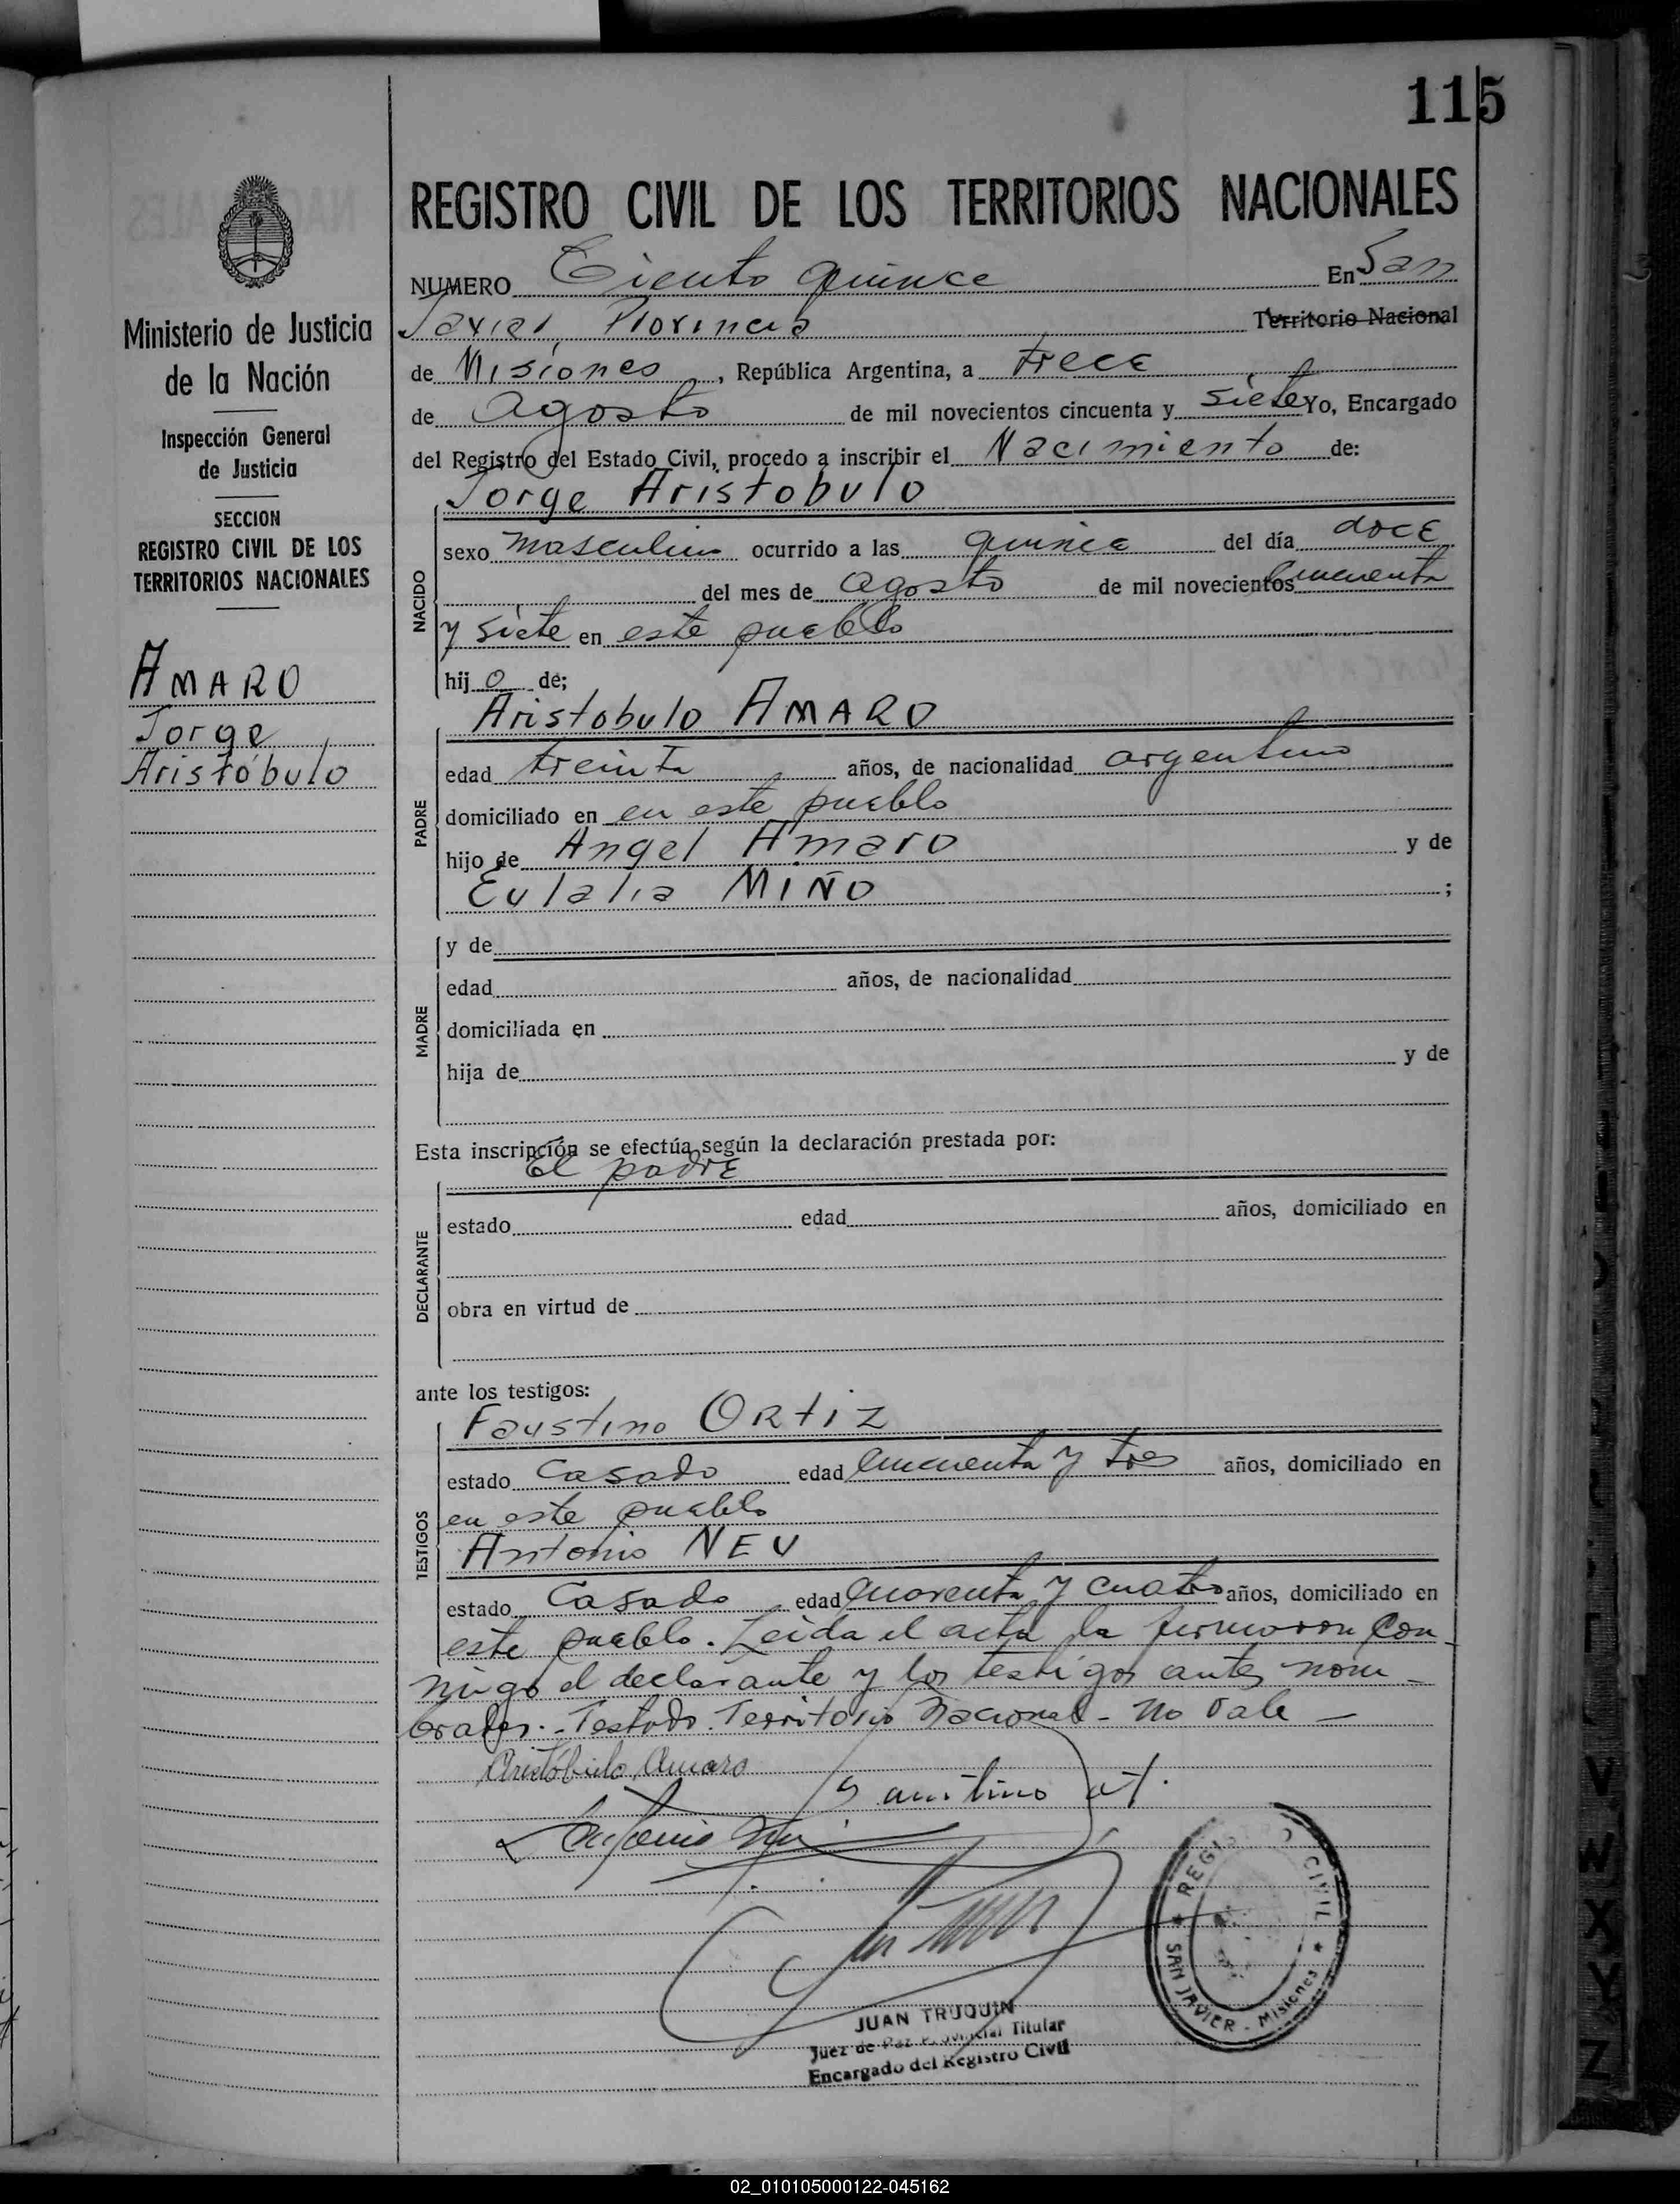 115
REGISTRO CIVIL DE LOS TERRITORIOS NACIONALES
NUMERO Ciento quince En San
Javier, Provincia Territorio Nacional
de Misiones, República Argentina, a trece
de agosto de mil novecientos cincuenta y siete Yo, Encargado
del Registro del Estado Civil, procedo a inscribir el Nacimiento de:
Jorge Aristobulo
NACIDO
sexo masculino ocurrido a las quince del día doce
del mes de agosto de mil novecientos cincuenta
y siete en este pueblo
hijo de;
Aristobulo AMARO
PADRE
edad treinta años, de nacionalidad argentino
domiciliado en en este pueblo
hijo de Angel Amaro y de
Eulalia MIÑO ;
MADRE
y de
edad años, de nacionalidad
domiciliada en
hija de y de
Esta inscripción se efectúa según la declaración prestada por:
El padre
DECLARANTE
estado edad años, domiciliado en
obra en virtud de
ante los testigos:
Faustino ORTIZ
TESTIGOS
estado casado edad cincuenta y tres años, domiciliado en
en este pueblo
Antonio NEU
estado Casado edad cuarenta y cuatro años, domiciliado en
este pueblo. Leida el acta la firmaron con
migo el declarante y los testigos antes nom-
brados.- Testado. Territorio Nacional - No Vale -
Aristóbulo Amaro
Antonio
JUAN TRUQUIN
Juez de Paz Provincial Titular
Encargado del Registro Civil
REGISTRO CIVIL
SAN JAVIER - Misiones
Ministerio de Justicia
de la Nación
Inspección General
de Justicia
SECCION
REGISTRO CIVIL DE LOS
TERRITORIOS NACIONALES
AMARO
Jorge
Aristóbulo
V
W
X
Y
Z
02_010105000122-045162